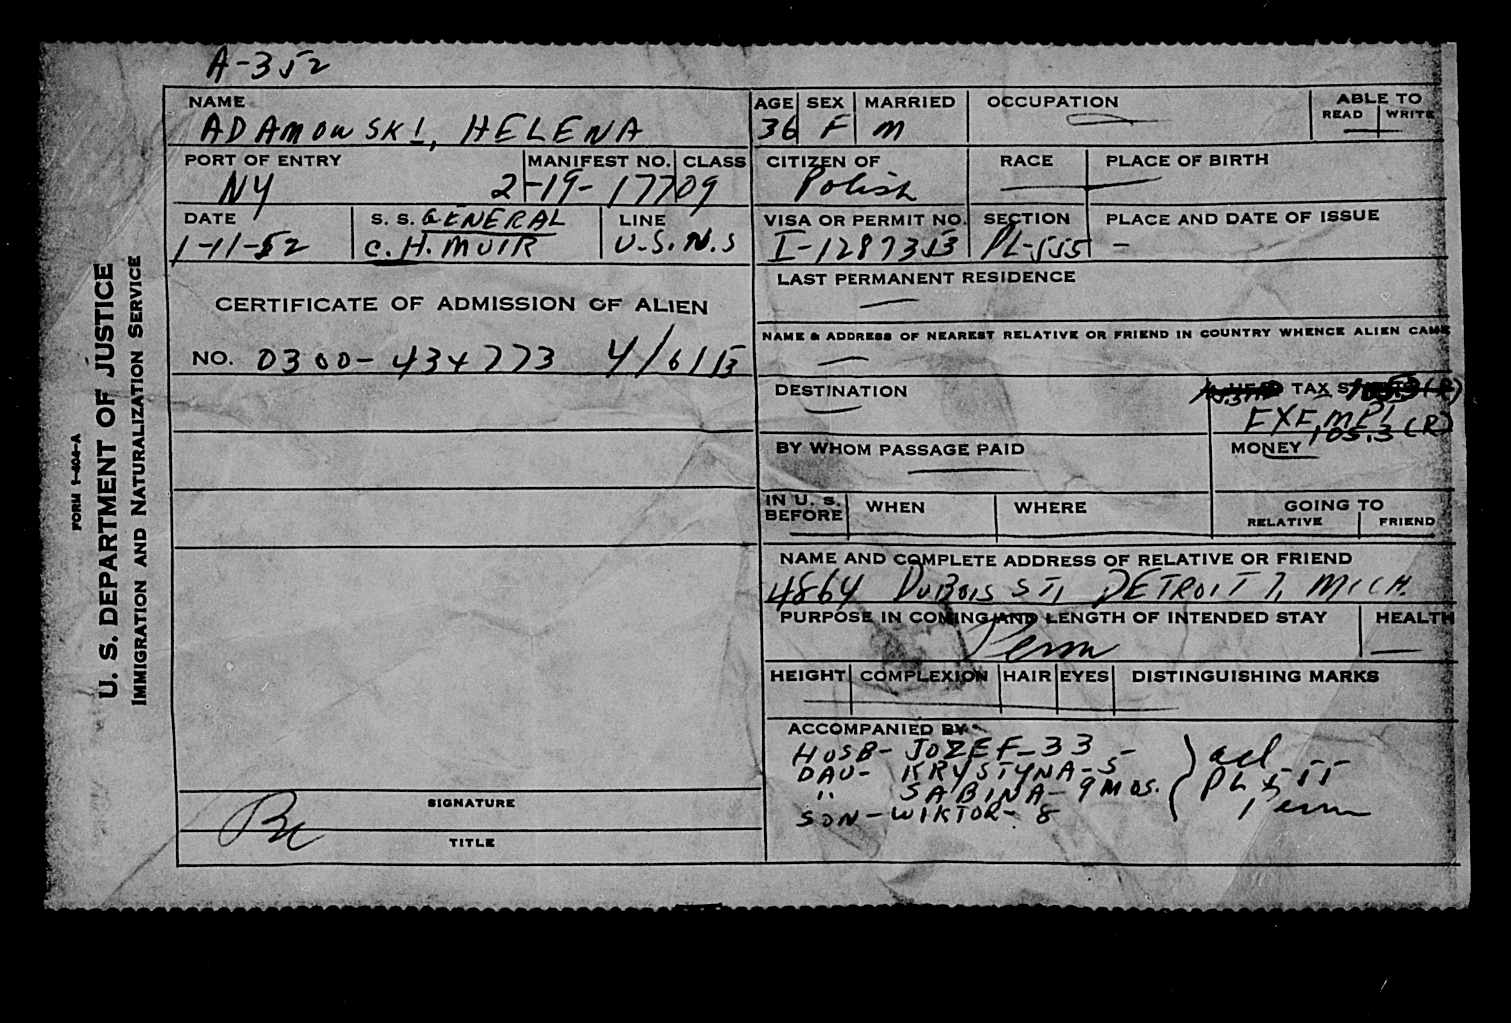 A-352
NAME AGE SEX MARRIED OCCUPATION ABLE TO
READ WRITE
ADAMOWSKI, HELENA 36 F M
PORT OF ENTRY MANIFEST NO. CLASS CITIZEN OF RACE PLACE OF BIRTH
NY 2-19-17709 Polish
DATE S. S. GENERAL LINE VISA OR PERMIT NO. SECTION PLACE AND DATE OF ISSUE
1-11-52 C. H. MUIR U.S.N.S I-1287353 PL-555 -
LAST PERMANENT RESIDENCE
CERTIFICATE OF ADMISSION OF ALIEN
NAME & ADDRESS OF NEAREST RELATIVE OR FRIEND IN COUNTRY WHENCE ALIEN CAME
NO. 0300-434773 4/6/13
DESTINATION TAX
EXEMPT
105.3 (R)
BY WHOM PASSAGE PAID MONEY
IN U. S. BEFORE WHEN WHERE GOING TO
RELATIVE FRIEND
NAME AND COMPLETE ADDRESS OF RELATIVE OR FRIEND
4864 DUBOIS ST, DETROIT 7, MICH.
PURPOSE IN COMING AND LENGTH OF INTENDED STAY HEALTH
Perm
HEIGHT COMPLEXION HAIR EYES DISTINGUISHING MARKS
ACCOMPANIED BY-
HUSB- JOZEF-33-
DAU- KRYSTYNA-5
" SABINA-9 MOS.
SON-WIKTOR-8
PL-55
Perm
SIGNATURE
TITLE
FORM I-404-A
U. S. DEPARTMENT OF JUSTICE
IMMIGRATION AND NATURALIZATION SERVICE